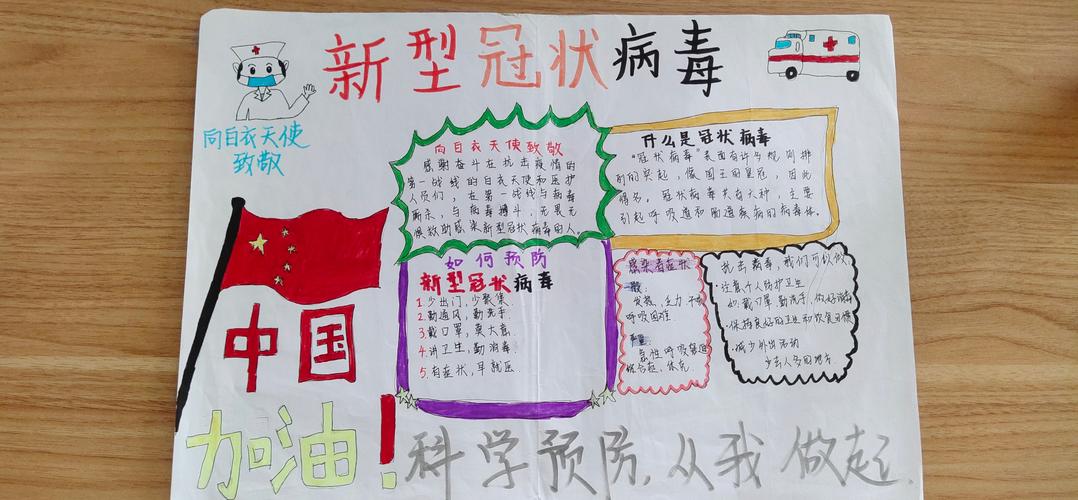 新型冠状病毒
向白衣天使
致敬
向白衣天使致敬
感谢奋斗在抗击疫情的
第一战线的白衣天使和医护
人员们，在第一战线与病毒
厮杀，与病毒搏斗，无畏无
惧救助感染新型冠状病毒的人。
什么是冠状病毒
"冠状病毒"表面有许多规则排
列的突起，像国王的皇冠，因此
得名。冠状病毒共有六种，主要
引起呼吸道和肠道疾病的病毒体。
如何预防
新型冠状病毒
1.少出门，少聚集.
2.勤通风，勤洗手.
3.戴口罩，莫大意.
4.讲卫生，勤消毒.
5.有症状，早就医.
感染者症状
一般：
发热，乏力，干咳
呼吸困难.
严重：
急性呼吸窘迫
综合征，休克
抗击病毒，我们可以做
·注意个人防护卫生
如：戴口罩 勤洗手，做好消毒
·保持良好的卫生和饮食习惯
·减少外出活动
少去人多的地方
中国
加油！
科学预防，从我做起。